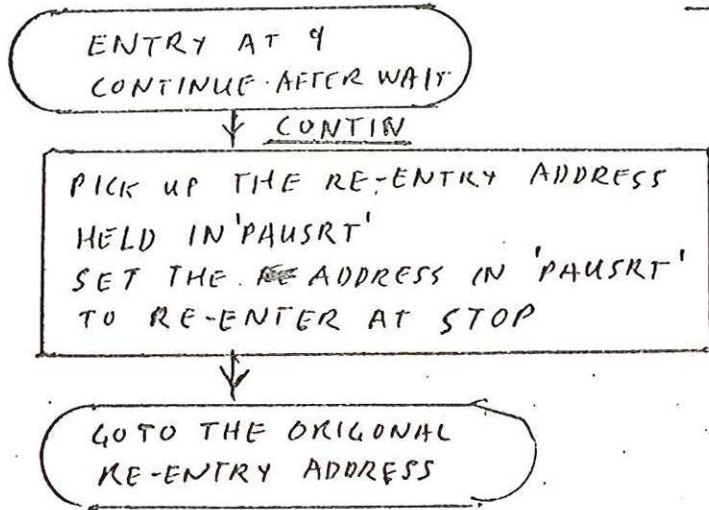 ENTRY AT 9
CONTINUE AFTER WAIT
CONTIN
PICK UP THE RE-ENTRY ADDRESS
HELD IN 'PAUSRT'
SET THE ADDRESS IN 'PAUSRT'
TO RE-ENTER AT STOP
GOTO THE ORIGONAL
RE-ENTRY ADDRESS